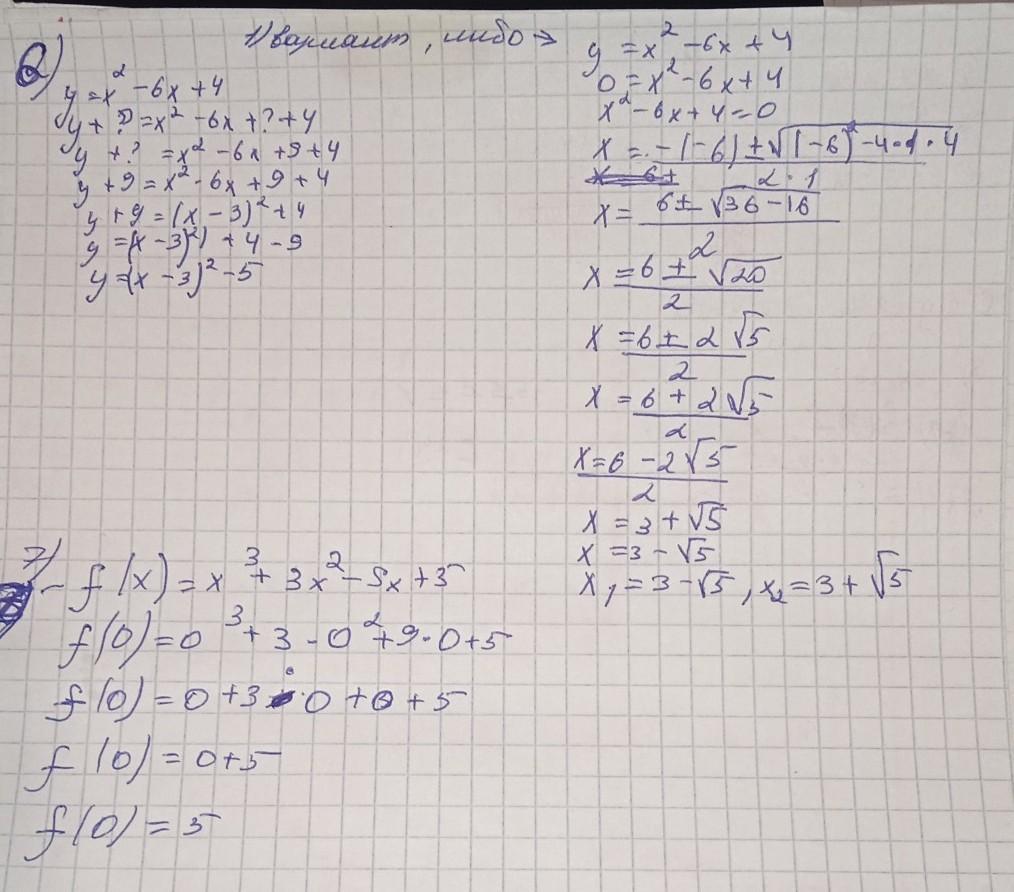 1) вариант, либо →
2)
y = x² - 6x + 4
y + ? = x² - 6x + ? + 4
y + ? = x² - 6x + 9 + 4
y + 9 = x² - 6x + 9 + 4
y + 9 = (x - 3)² + 4
y = (x - 3)²) + 4 - 9
y = (x - 3)² - 5
y = x² - 6x + 4
0 = x² - 6x + 4
x² - 6x + 4 = 0
x = -(-6) ± √(-6)² - 4·1·4
2·1
x = 6 ± √36 - 16
2
x = 6 ± √20
2
x = 6 ± 2√5
2
x = 6 + 2√5
2
x = 6 - 2√5
2
x = 3 + √5
x = 3 - √5
x₁ = 3 - √5, x₂ = 3 + √5
7)
- f(x) = x³ + 3x² - 5x + 5
f(0) = 0³ + 3 - 0² + 9·0 + 5
f(0) = 0 + 3·0 + 0 + 5
f(0) = 0 + 5
f(0) = 5